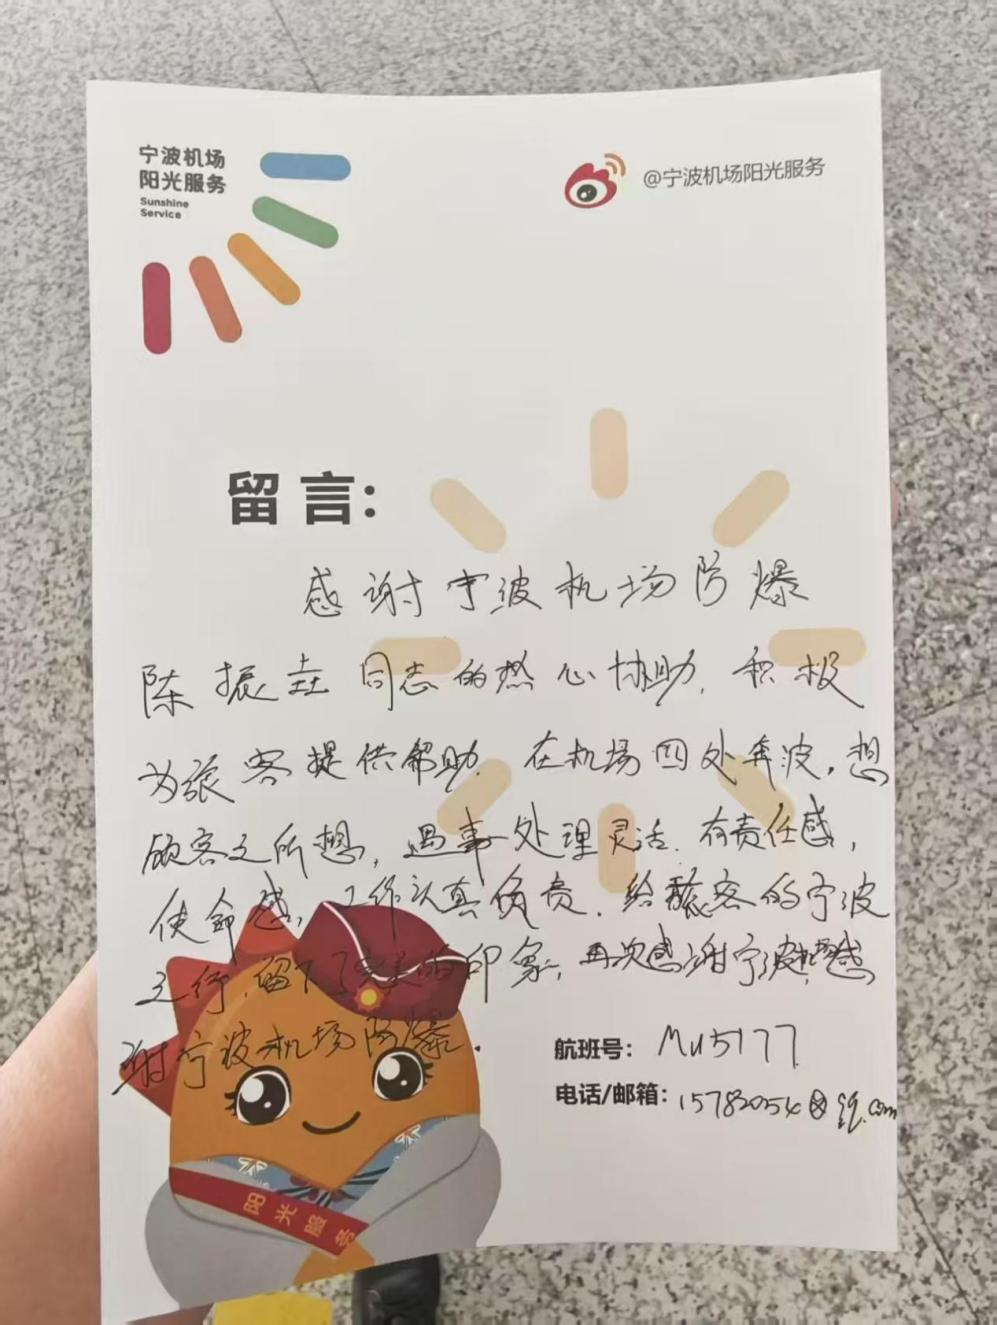 宁波机场
阳光服务
Sunshine
Service
@宁波机场阳光服务
留言:
感谢宁波机场防爆
陈振垚同志的热心协助,积极
为旅客提供帮助,在机场四处奔波,想
顾客之所想,遇事处理灵活,有责任感,
使命感,工作认真负责,给旅客的宁波
之行,留下了完美的印象,再次感谢宁波机场,感
谢宁波机场防爆.
航班号: MU5177
电话/邮箱: 15782054@qq.com
阳光服务